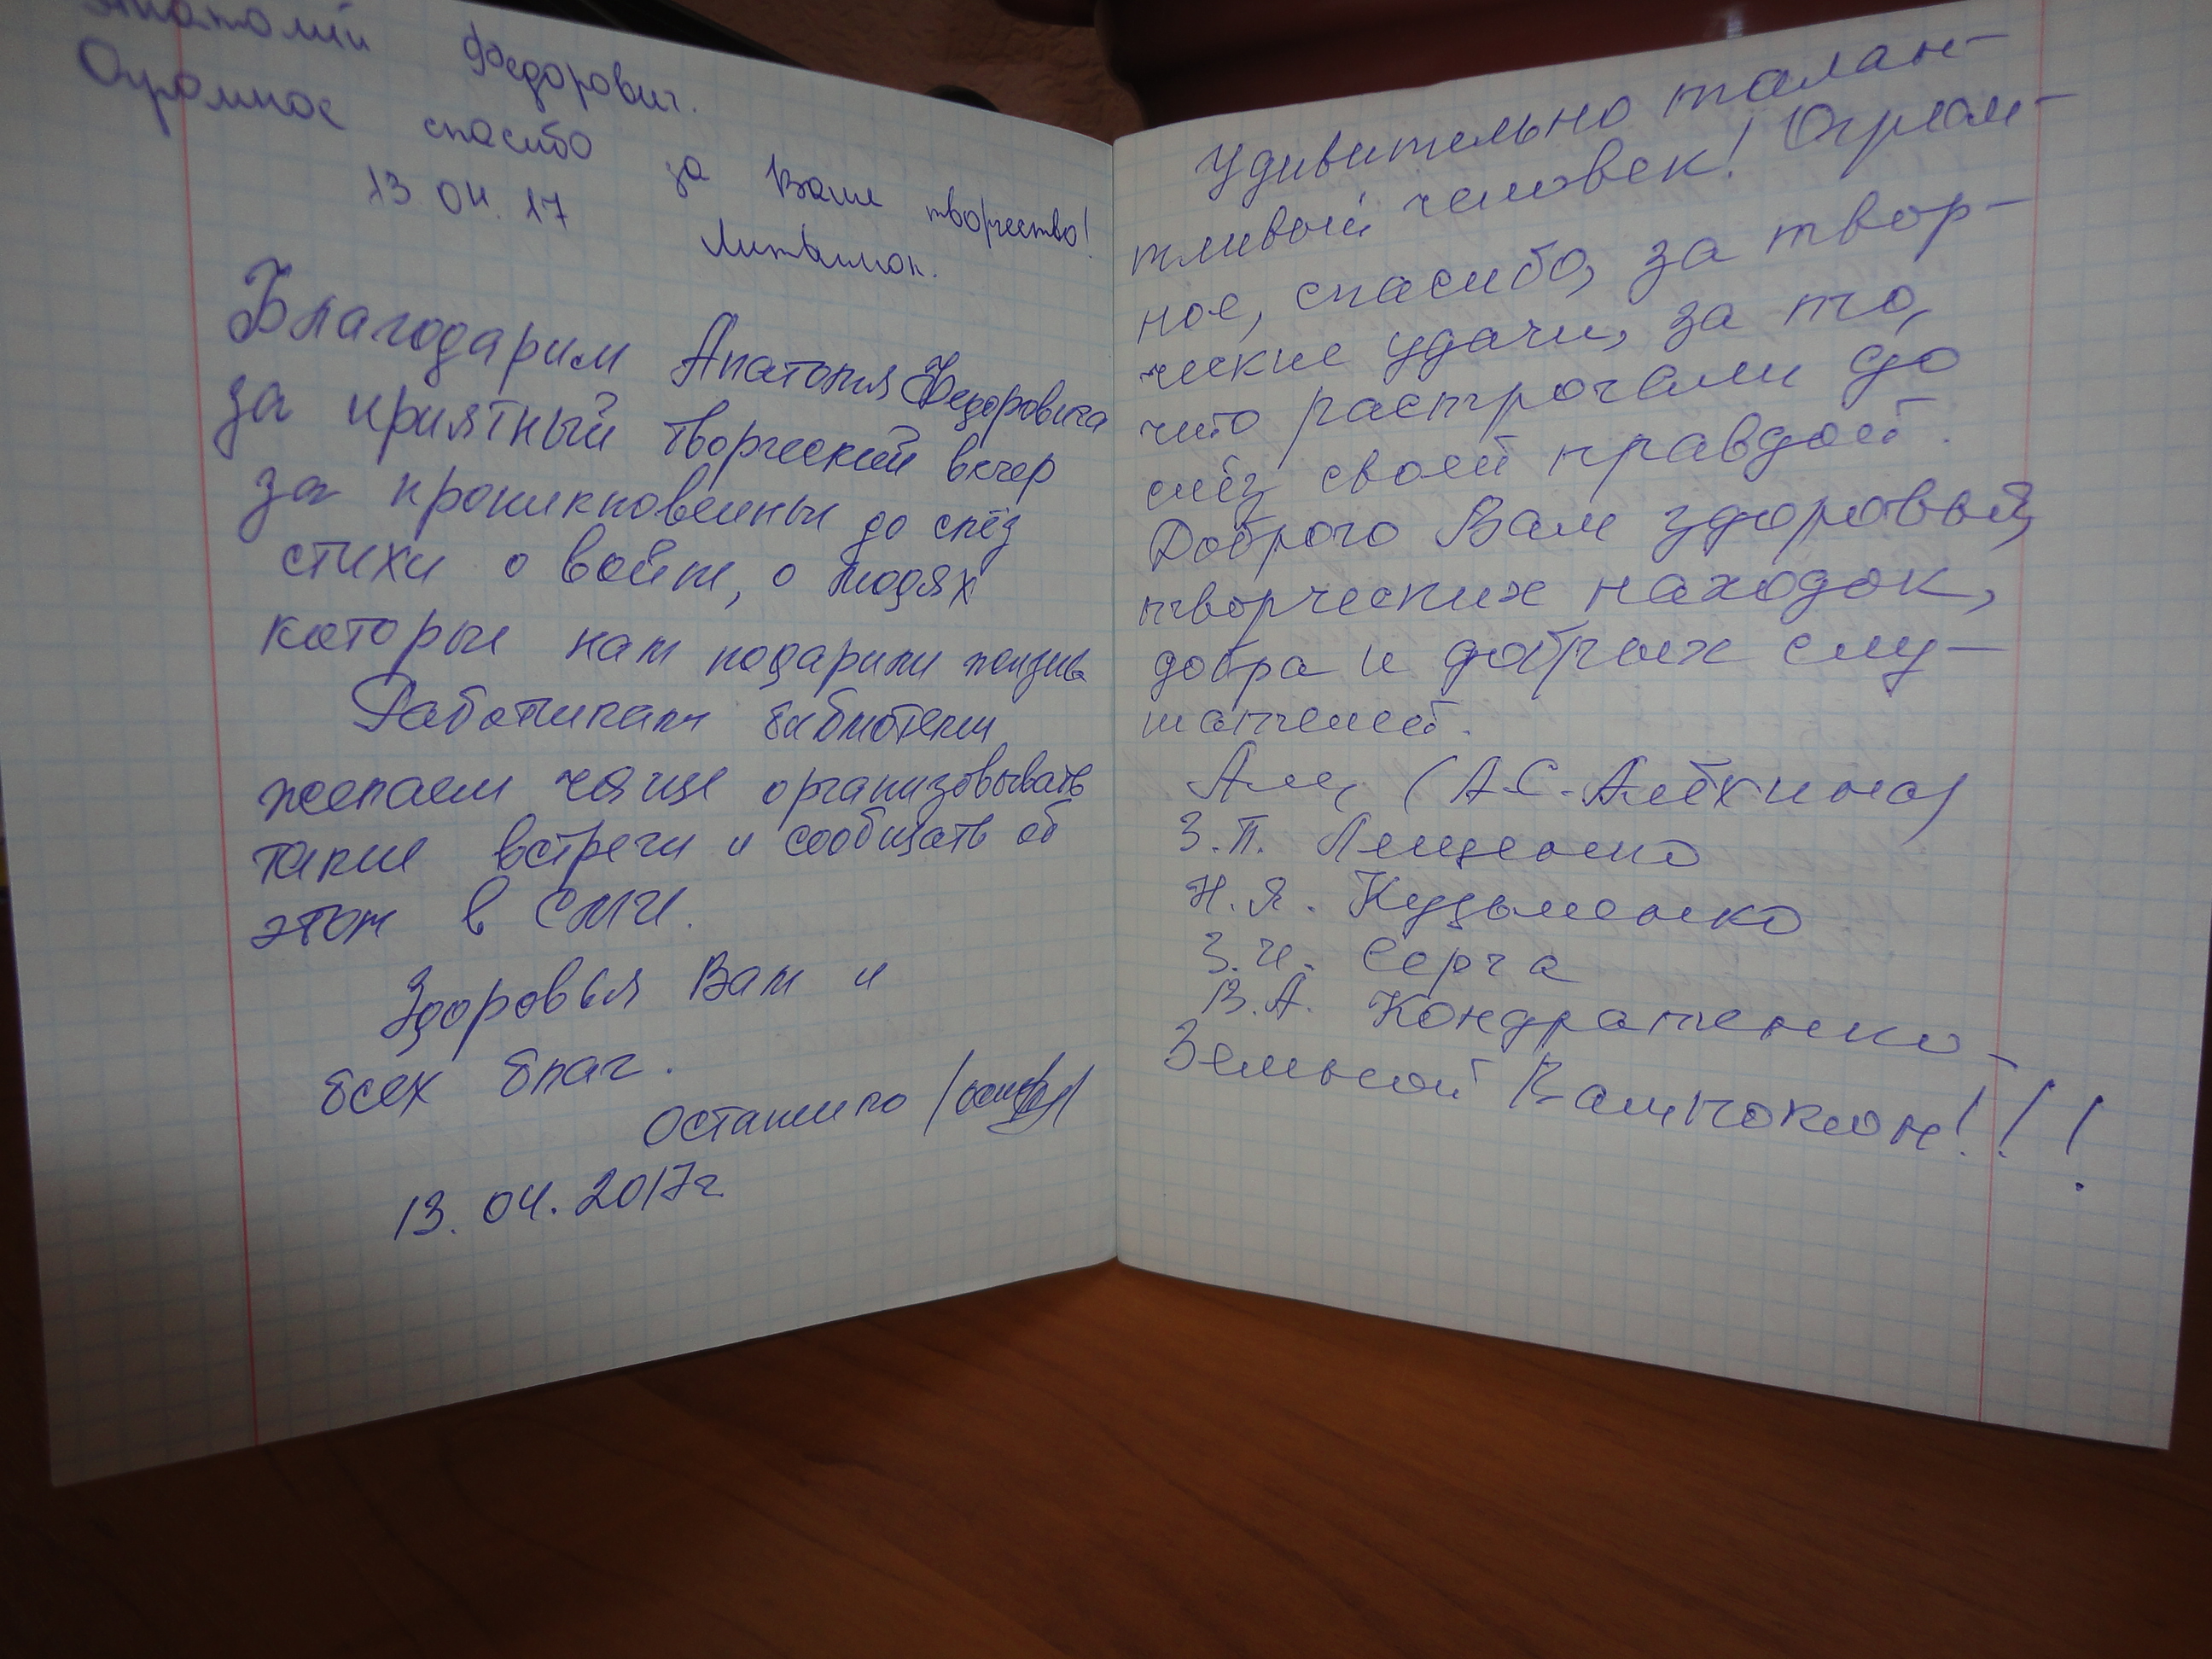 Анатолий Федорович.
Огромное спасибо за Ваше творчество!
13.04.17
Благодарим Анатолия Федоровича
за приятный творческий вечер
за проникновенные до слёз
стихи о войне, о людях
которые нам подарили жизнь
Работникам библиотеки
желаем чаще организовывать
такие встречи и сообщать об
этом в СМИ.
Здоровья Вам и
всех благ.
13.04.2017г
Удивительно талан-
тливый человек! Огром-
ное, спасибо, за твор-
ческие удачи, за то,
что растрогали до
слёз своей правдой.
Доброго Вам здоровья,
творческих находок,
добра и добрых слу-
шателей.
(А.С. Алёхина)
З.П. Лещенко
Н.Я. Кузьменко
З.И. Серга
В.А. Кондратенко -
Земной Вам поклон!!!